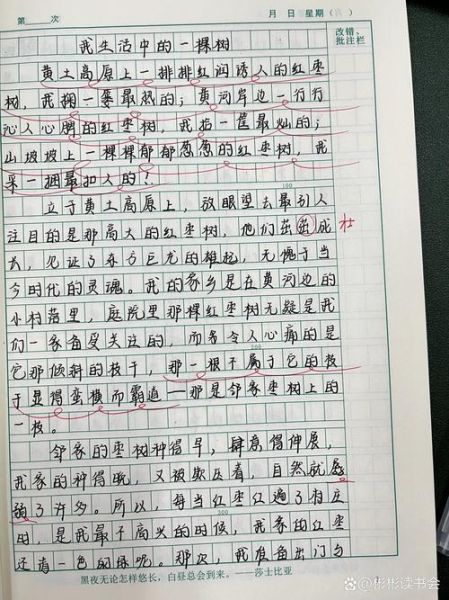 第 次 月 日 星期( )
改错、
批注栏
我生活中的一棵树
黄土高原上一排排红润诱人的红枣
树，我掬一篓最热的；黄河岸边一行行
沁人心脾的红枣树，我拾一筐最灿的；
山坡坡上一棵棵郁郁葱葱的红枣树，我
采一捆最扣人的？
100
立于黄土高原上，放眼望去最引人
注目的是那高大的红枣树，他们茁茁成 壮
长，见证了东方巨龙的雄起，无愧于当
今时代的灵魂。我的家乡是在黄河边的
小村落里，庭院里那棵红枣树无疑是我
们一家备受关注的，而每令人心痛的是
200
它那倾斜的枝干，那一根不属于它的枝
干显得蛮横而霸道——那是邻家枣树上的
一枝。
邻家的枣树种得早，肆意得伸展，
我家的种得晚，又被欺压着，自然就
输了许多。所以，每当红枣红遍了村庄
300
时，是我最不高兴的时候，我家的红枣
还清一色的绿呢。那次，我准备出门与
黑夜无论怎样悠长，白昼总会到来。——莎士比亚
@彬彬读书会